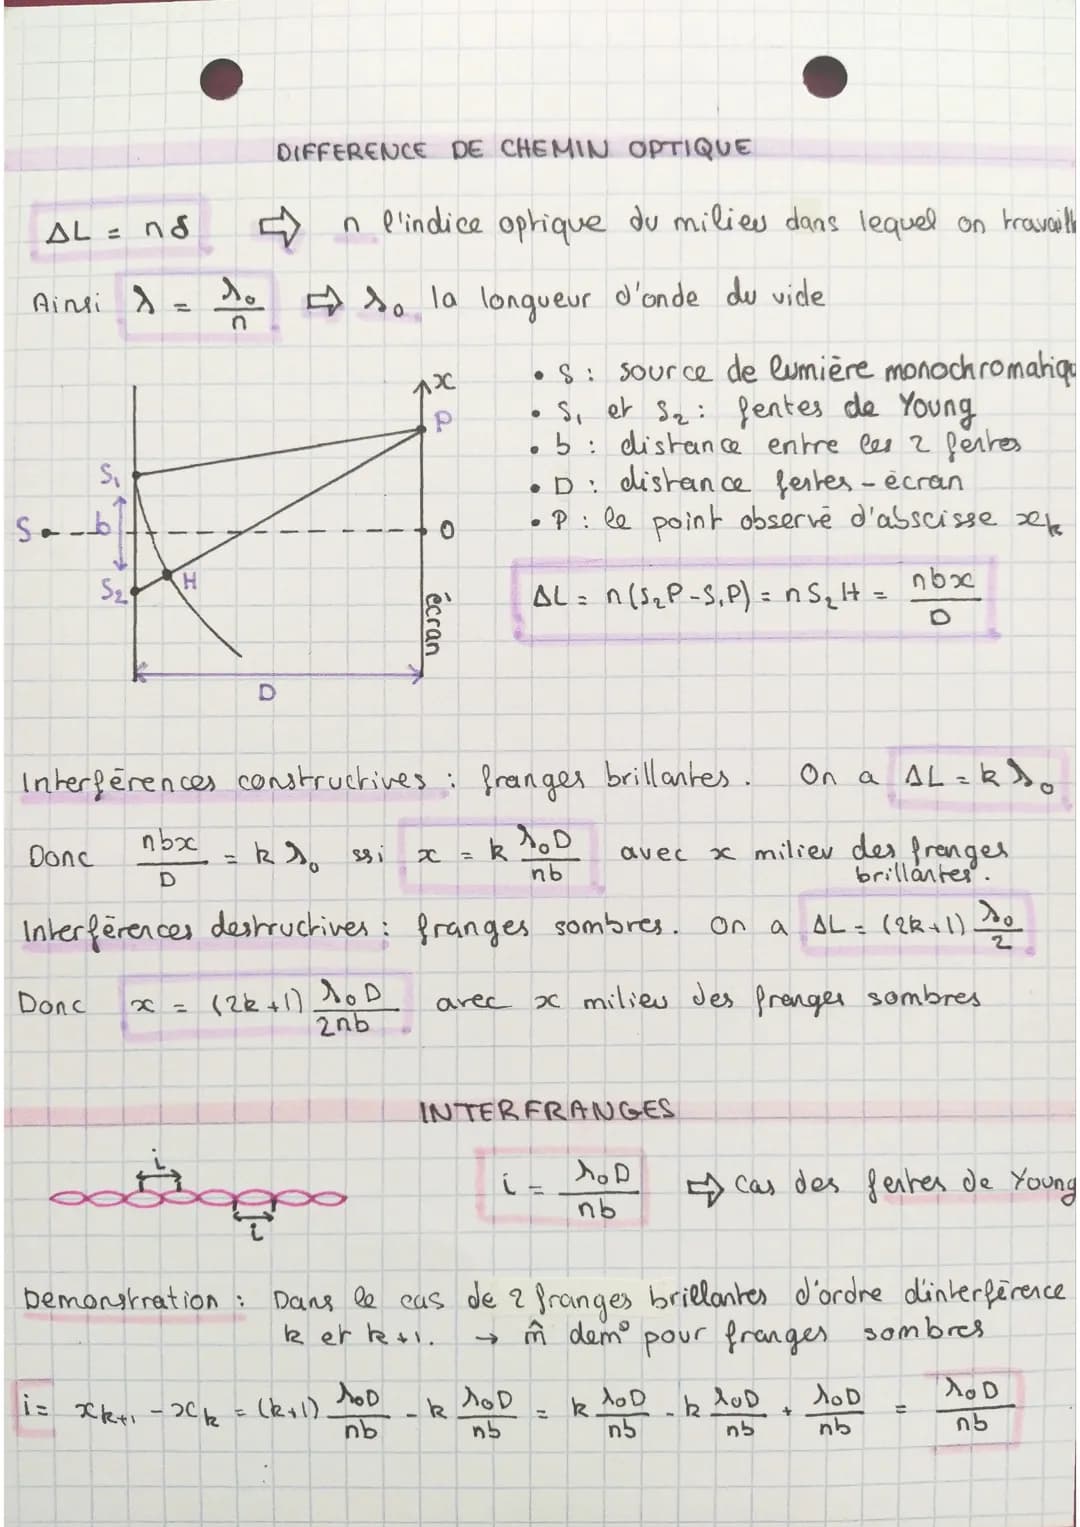 DIFFERENCE DE CHEMIN OPTIQUE
ΔL = nδ ⇨ n l'indice optique du milieu dans lequel on travaill
Ainsi λ = λ₀/n ⇨ λ₀ la longueur d'onde du vide
x
P
S₁
S
b
O
S₂
H
écran
D
• S : source de lumière monochromatiqu
• S₁ et S₂ : fentes de Young
• b : distance entre les 2 fentes
• D : distance fentes - écran
• P : le point observé d'abscisse xₖ
ΔL = n(S₂P - S₁P) = n S₂H = nbx/D
Interférences constructives : franges brillantes. On a ΔL = kλ₀
Donc nbx/D = kλ₀ ssi x = k λ₀D/nb avec x milieu des franges
brillantes.
Interférences destructives : franges sombres. On a ΔL = (2k+1) λ₀/2
Donc x = (2k+1) λ₀D/2nb avec x milieu des franges sombres
INTERFRANGES
i
i
i = λ₀D/nb ⇨ cas des fentes de Young
Démonstration : Dans le cas de 2 franges brillantes d'ordre d'interférence
k et k+1. → m̂ dem° pour franges sombres
i = xₖ₊₁ - xₖ = (k+1) λ₀D/nb - k λ₀D/nb = k λ₀D/nb - k λ₀D/nb + λ₀D/nb = λ₀D/nb